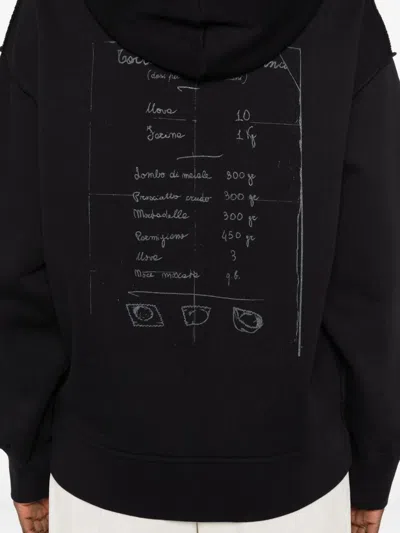 (dosi per
Uova 10
Farina 1 Kg
Lombo di maiale 300 gr
Prosciutto crudo 300 gr
Mortadella 300 gr
Parmigiano 450 gr
Uova 3
Noce moscata q.b.